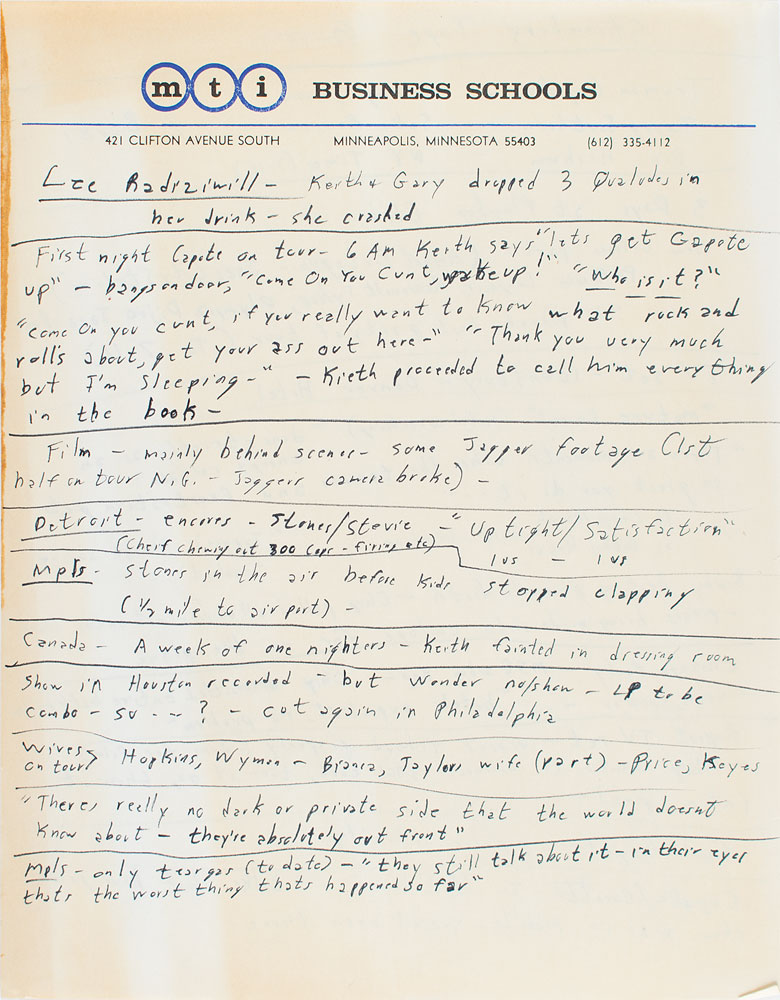 mti BUSINESS SCHOOLS
421 CLIFTON AVENUE SOUTH MINNEAPOLIS, MINNESOTA 55403 (612) 335-4112
Lee Radiziwill - Keith & Gary dropped 3 Qualudes in
her drink - she crashed
First night Capote on tour - 6 AM Keith says "lets get Capote
up" - bangs on door, "Come On You Cunt, wake up!" "Who is it?"
"come on you cunt, if you really want to know what rock and
roll's about, get your ass out here -" "Thank you very much
but I'm sleeping -" - Kieth proceeded to call him everything
in the book -
Film - mainly behind scenes - some Jagger footage (1st
half on tour N.G. - Jaggers camera broke) -
Detroit - encores - Stones/Stevie - "Uptight/Satisfaction"
(Cheif chewing out 300 cops - firing etc) 1 vs - 1 vs
Mpls - Stones in the air before kids stopped clapping
(1/2 mile to airport) -
Canada - A week of one nighters - Keith fainted in dressing room
Show in Houston recorded - but Wonder no/show - LP to be
combo - so - - ? - cut again in Philadelphia
Wives on tour > Hopkins, Wyman - Bianca, Taylors wife (part) - Price, Keyes
"Theres really no dark or private side that the world doesnt
know about - they're absolutely out front"
Mpls - only teargas (to date) - "they still talk about it - in their eyes
thats the worst thing thats happened so far"